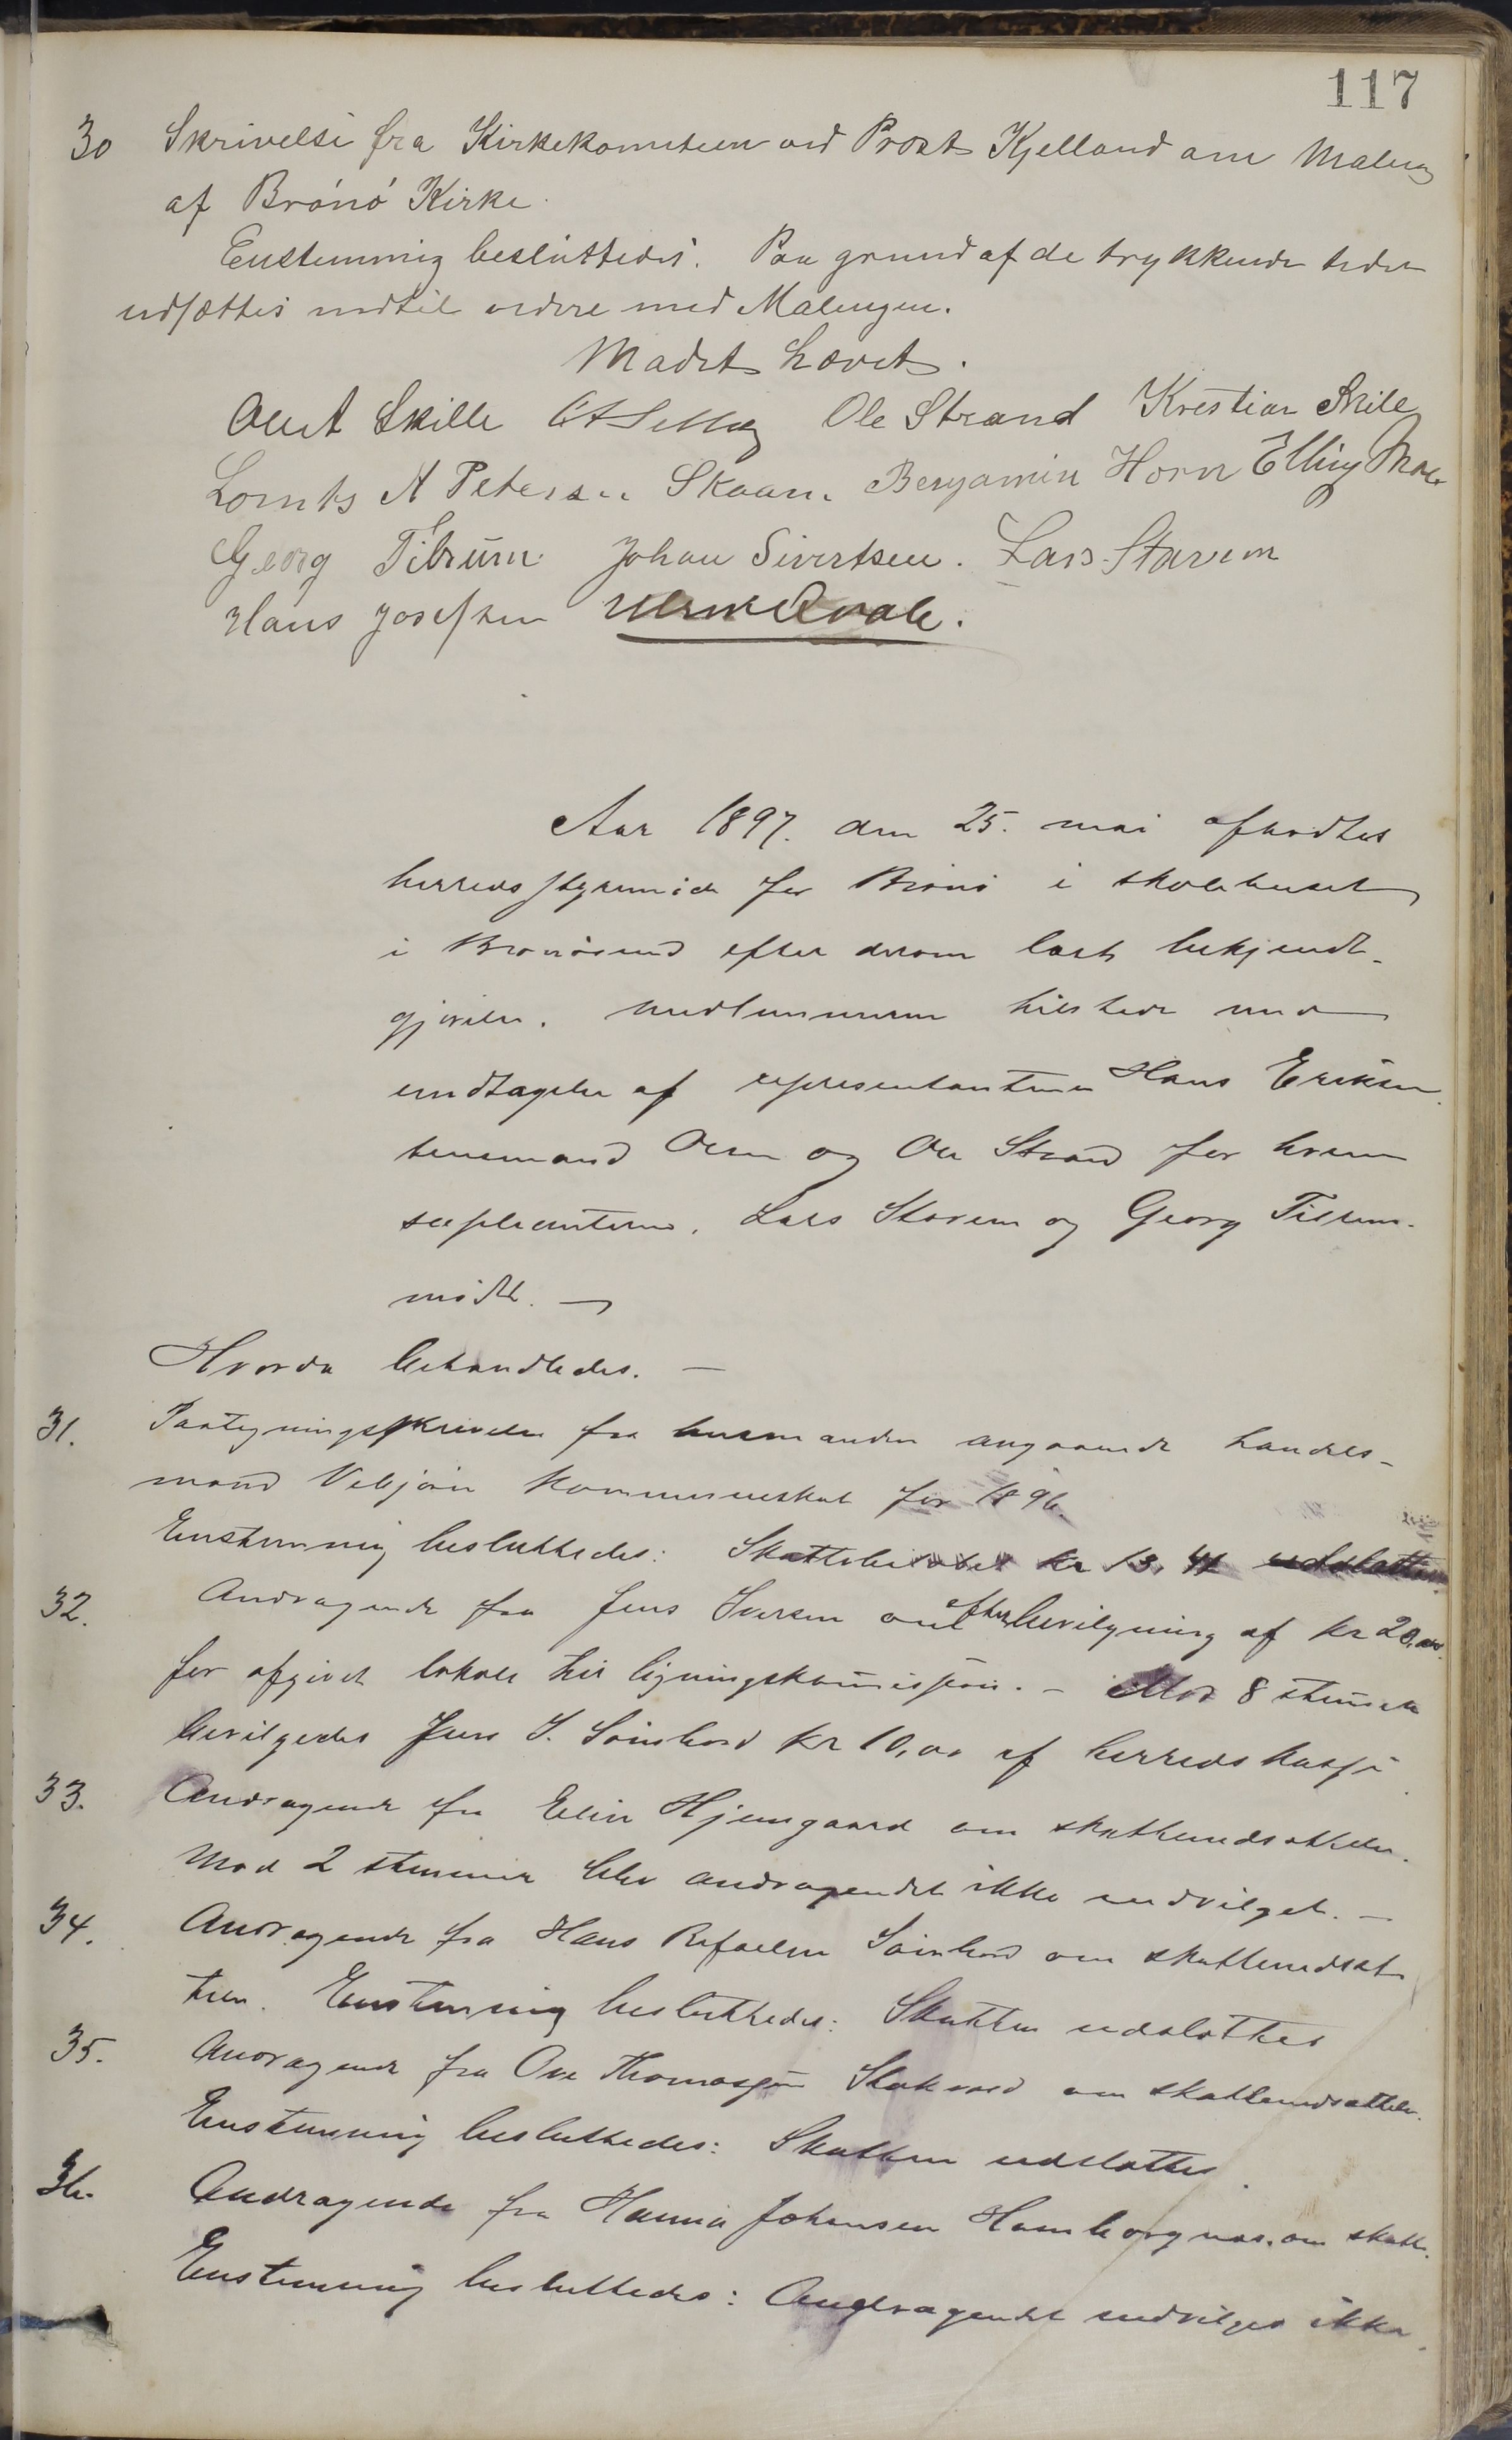 117
30 Skrivelse fra Kirkekomiteen ved Prost Kjelland om Maling
af Brönö Kirke.
Enstemmig besluttedes. Paa grund af de trykkende tider
udsættes indtil videre med Malingen.
Mødet hævet.
Olut Skille Ole Strand Kristian Skille
Lornts A Petersen Skaan. Benjamin Horn Elling Moe
Georg Tilrum. Johan Sivertsen. Lars Stavem
Hans Josefsen Qvale.
Aar 1897. den 25. mai afholdtes
herredsstyremöde for Brönö i skolehuset
i Brönösund efter derom læst bekjendt-
gjörelse. Medlemmerne tilstede med
undtagelse af repræsentanterne Hans Eriksen
lensmand Olsen og Ole Strand for hvem
suplianterne, Lars Stavem og Georg Tilrum.
mödte. —
Hvorda behandledes. —
31. Paategningsskrivelse fra lensmanden angaaende handels-
mand Vebjörn Kommuneskat for 1896.
Enstemmig besluttedes: Skattebelöbet kr 13,41 udslættes
32. Andragende fra Jens Iversen om efterbevilgning af kr 20,00
for afgivet lokale til ligningskommission. — Mod 8 stemmer
bevilgedes Jens I. Sömhovd kr 10,00 af herredskassen
33. Andragende fra Elin Hjemgaard om skattenedsættelse.
Mod 2 stemmer blev andragendet ikke indvilget. —
34. Andragende fra Hans Rafaelsen Sömhovd om skattenedsæt
telse. Enstemmig besluttedes: Skatten udslættes
35. Andragende fra Ove Thomassen om skattenedsættelse.
Enstemmig besluttedes: Skatten udslættes.
36. Andragende fra Hanna Johansen Hamborgnes. om skatt.
Enstemmig besluttedes: Andragendet indvilges ikke.